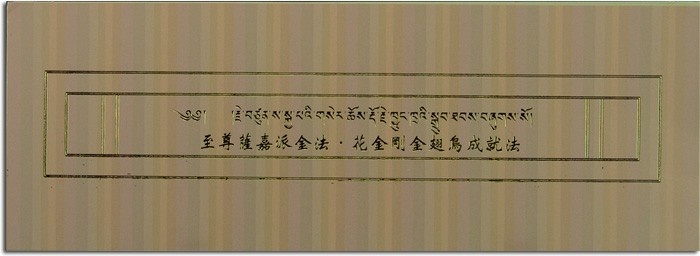 ༄༅། །རྗེ་བཙུན་ས་སྐྱ་པའི་གསེར་ཆོས་རྡོ་རྗེ་ཁྱུང་ཁྲའི་སྒྲུབ་ཐབས་བཞུགས་སོ།
至尊薩嘉派金法・花金剛金翅鳥成就法